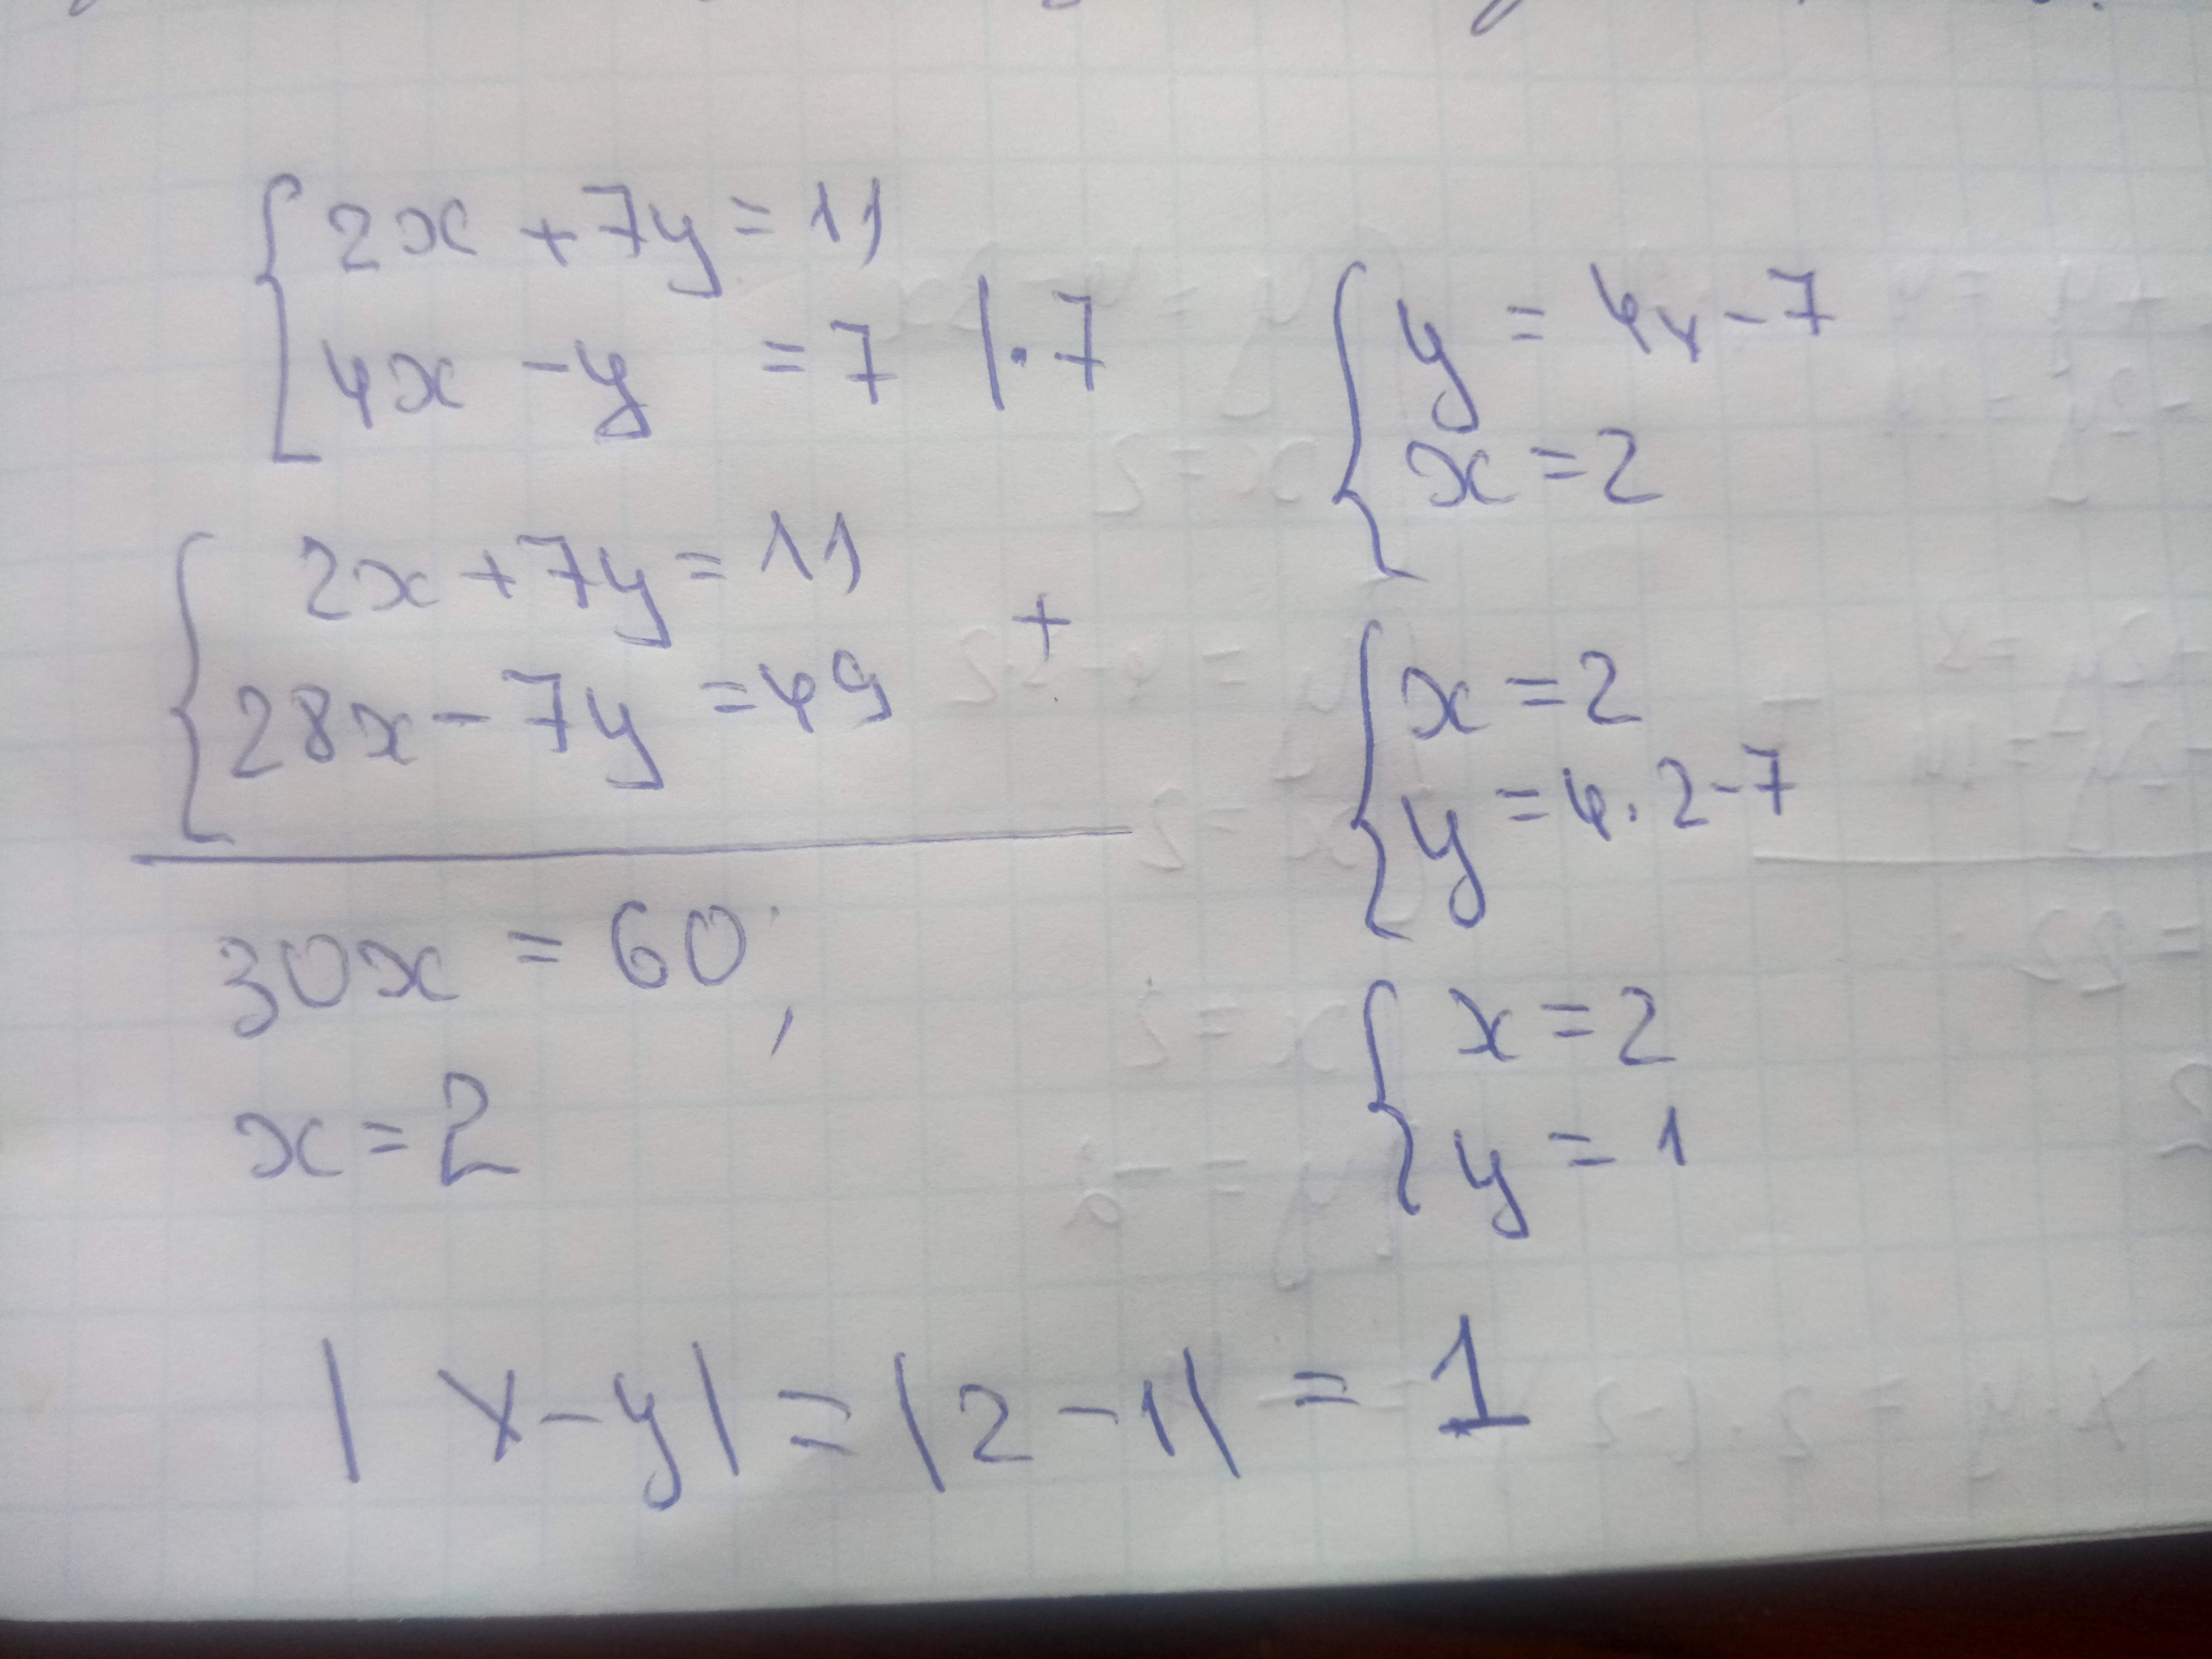 2x + 7y = 11
4x - y = 7 | · 7
2x + 7y = 11
28x - 7y = 49
+
30x = 60;
x = 2
y = 4x - 7
x = 2
x = 2
y = 4 · 2 - 7
x = 2
y = 1
|x - y| = |2 - 1| = 1